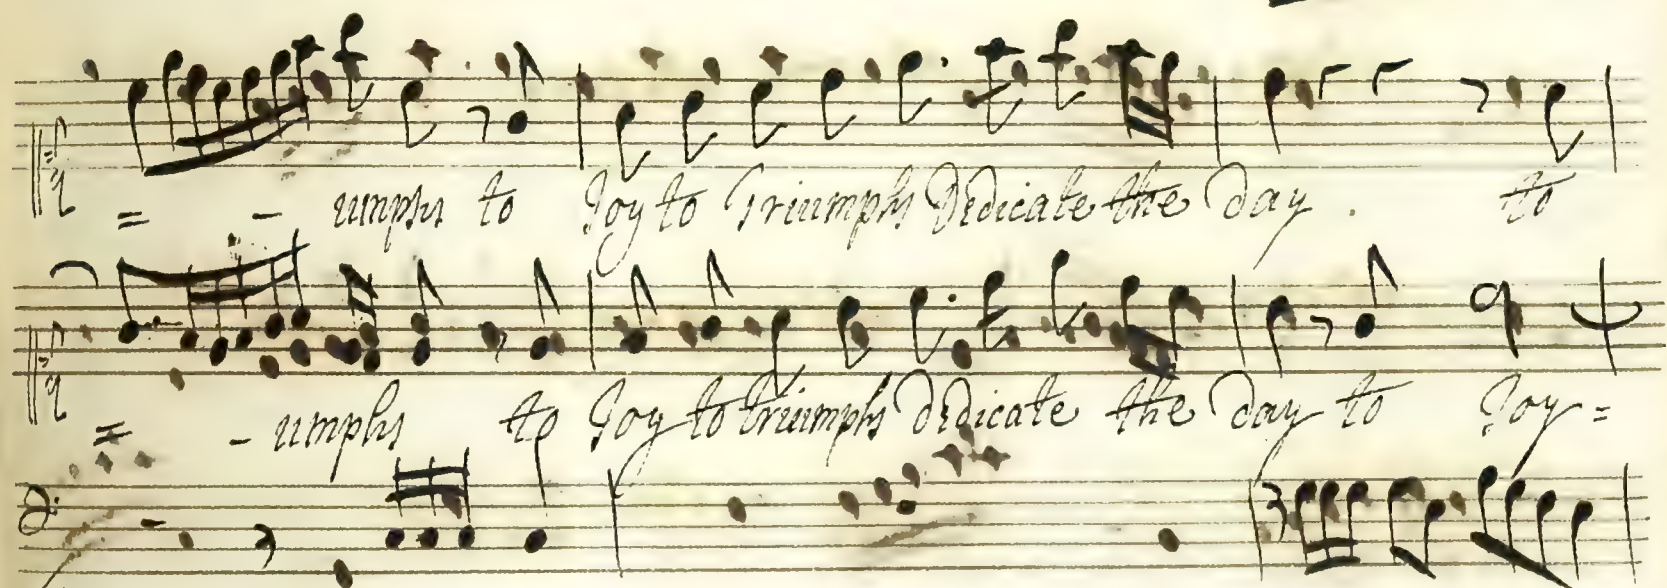 = - umphs to Joy to Triumphs Dedicate the day . to
= - umphs to Joy to triumphs dedicate the day to Joy =